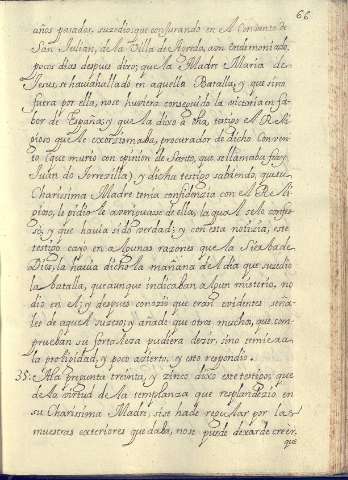 66
años pasados, suzedio que conjurando en el Conuento de
San Julian, de la Villa de Agreda, a vn Endemoniado,
pocos dias despues dixo; que la Madre Maria de
Jesus, se hauia hallado en aquella Batalla, y que sino
fuera por ella, no se huuiera conseguido la victoria en fa-
bor de España; y que la dixo a otra, testigo el Re li-
gioso que le exorzizaba, procurador de dicho Conuen-
to (que murio con opinion de Santo, que se llamaba fray
Juan de Torrezilla) y dicha testigo sabiendo, que su
Charissima Madre tenia confianza con el Reli-
gioso, le pidio lo averiguase de ella, la qual se lo confe-
so, y que hauia sido verdad; y con esta notizia, este
testigo cayo en algunas razones que la Sierba de
Dios, la hauia dicho la mañana del dia que suzedio
la batalla, que aunque indicaban algun misterio, no
dio en el; y despues conozio que eran evidentes seña-
les de aquel suzeso; y añade que otras muchas, que com-
prueban su fortaleza pudiera dezir, sino temiera
la prolixidad, y poco azierto, y esto respondio.
35. A la pregunta treinta, y zinco dixo este testigo, que
de la virtud de la templanza que resplandezio en
su Charissima Madre, si se ha de regular por las
muestras exteriores que daba, no se puede dexar de creer,
que